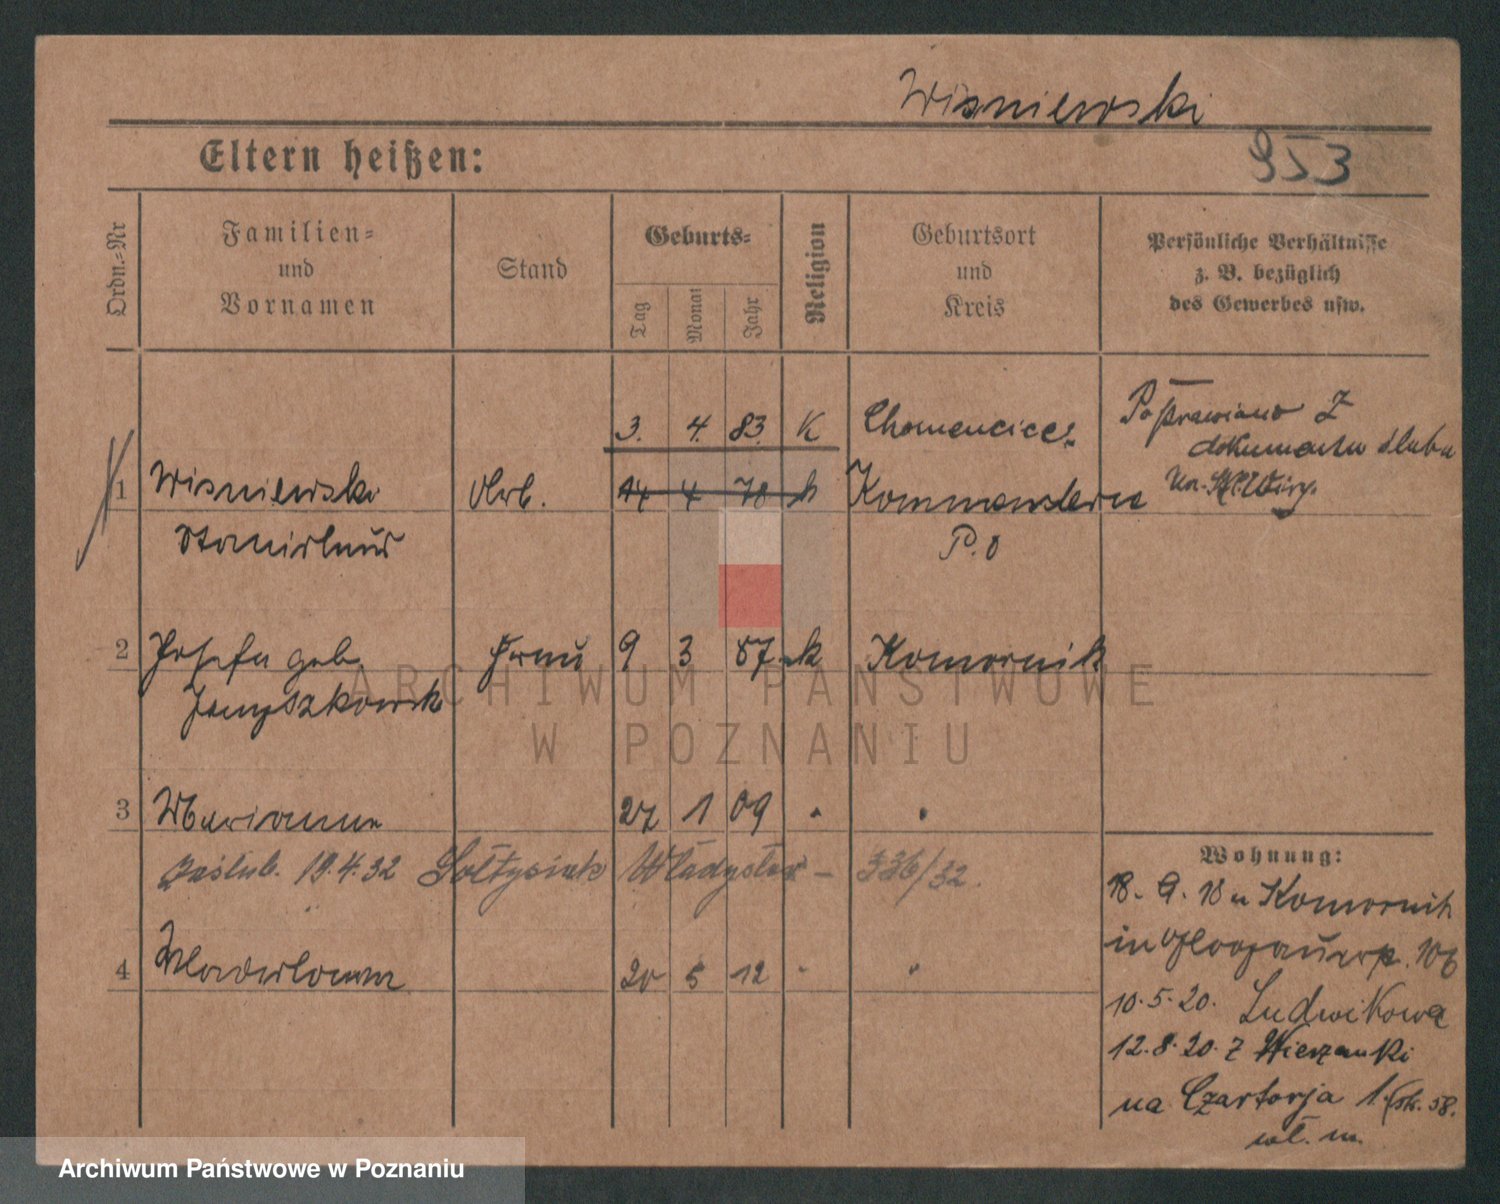 Wisniewski
Eltern heißen:
953
Ordn.-Nr
Familien- und Vornamen
Stand
Geburts-
Tag
Monat
Jahr
Religion
Geburtsort und Kreis
Persönliche Verhältnisse
z. B. bezüglich
des Gewerbes usw.
3. 4. 83. K Chomencice.
Poprawiono z
dokumentu ślubu
1 Wisniewski Arb. 14 4 78 k
Stanislaus
P. O
2 Josefa geb. Frau 9 3 87 k Komornik
3 Marianna 27 1 09 " "
Zaślub. 19.4.32 Sołtysiak Władysław - 336/32.
4 Wladislawa 20 5 12 " "
Wohnung:
18. 9. 18 Komornik
in
10.5.20. Ludwikowa
12.8.20. z Wierzanki
na Czartorja 1.
wł. m.
ARCHIWUM PAŃSTWOWE
W POZNANIU
Archiwum Państwowe w Poznaniu